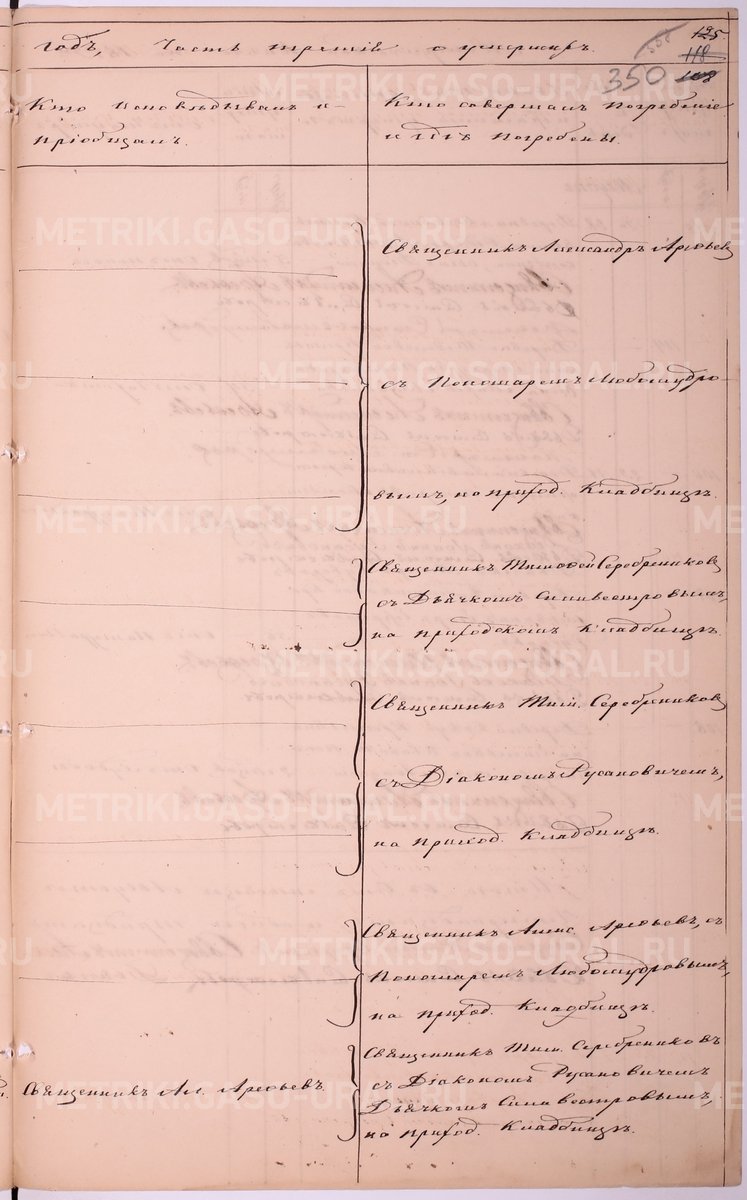 годъ, Часть третія о умершихъ.
350
125
118
108
Кто исповѣдывалъ и
пріобщалъ.
Кто совершалъ погребеніе
и гдѣ погребены.
Священникъ Александръ Арефьевъ
съ Пономаремъ Любомудро-
вымъ, на приход. Кладбищѣ.
Священникъ Тимофей Серебренниковъ
съ Дьячкомъ Сильвестровымъ,
на приходскомъ Кладбищѣ.
Священникъ Тим. Серебренниковъ
съ Діакономъ Русановичемъ,
на приход. Кладбищѣ.
Священникъ Алекс. Арефьевъ, съ
Пономаремъ Любомудровымъ,
на приход. Кладбищѣ.
Священникъ Ал. Арефьевъ
Священникъ Тим. Серебренниковъ
съ Діакономъ Русановичемъ
Дьячкомъ Сильвестровымъ,
на приход. Кладбищѣ.
METRIKI.GASO-URAL.RU